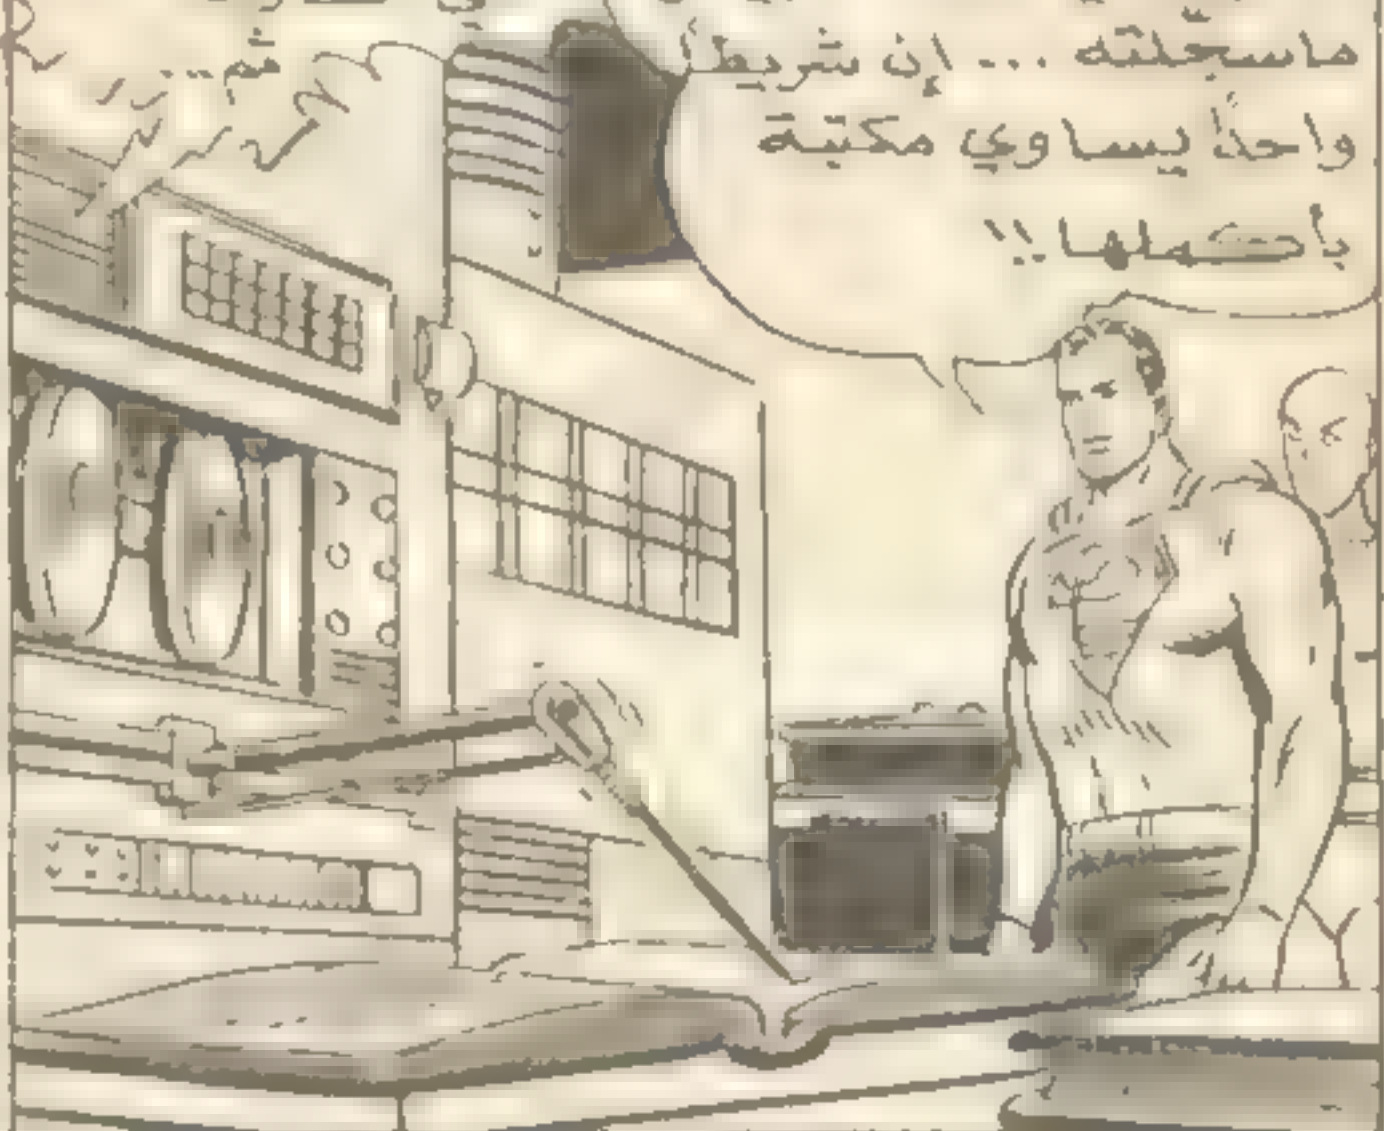 ثم...
ماسجلته ... إن شريطاً
واحداً يساوي مكتبة
بأكملها!!